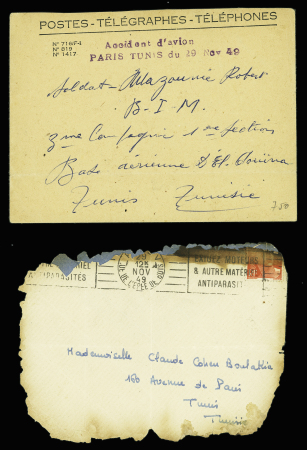 POSTES - TÉLÉGRAPHES - TÉLÉPHONES
N° 819
N° 1417
Accident d'avion
PARIS TUNIS du 29 Nov 49
Soldat Robert
B-I-M-
3me Compagnie 1ère Section
Base aérienne d'El-Aouina
Tunis Tunisie
750
ANTIPARASITES
12H
NOV
49
MOTEURS
& AUTRE MATÉRIEL
ANTIPARASIT
Mademoiselle Claude Cohen Boulakia
Avenue de Paris
Tunis
Tunisie